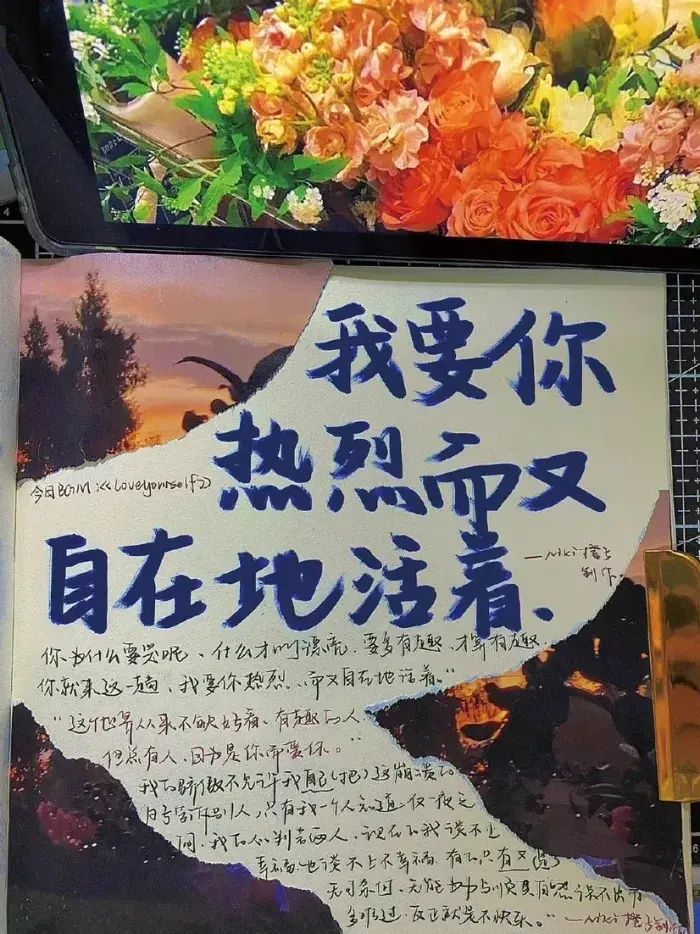 我要你
热烈而又
今日BGM:《Loveyourself》
自在地活着、
—Niki橙与
制作
你为什么要哭呢、什么才叫漂亮.要多有趣.才算有趣.
你就来这一趟.我要你热烈.而又自在地活着。"
"这世界从来不缺好看、有趣的人
但总有人,因为是你而要你。"
我的骄傲不允许我把这崩溃的
日子告诉别人,只有我一个人知道,仅一夜之
间,我的心判若两人,现在的我谈不上
幸福,也谈不上不幸福,有的只有
多难过,反正就是不快乐。"—Niki橙与制作